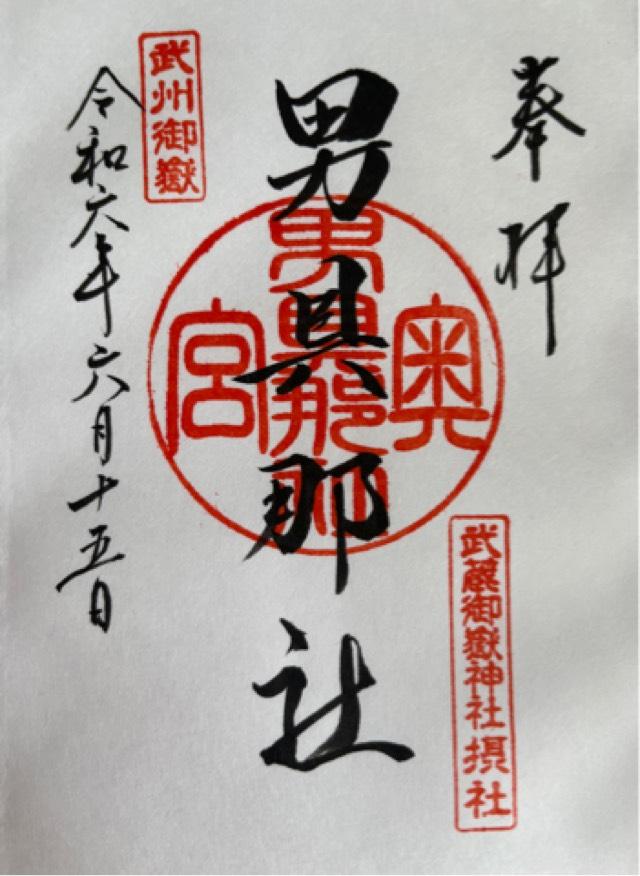 奉拝
武蔵御嶽神社摂社
男具那社
奥宮
男具那社
武州御嶽
令和六年六月十五日